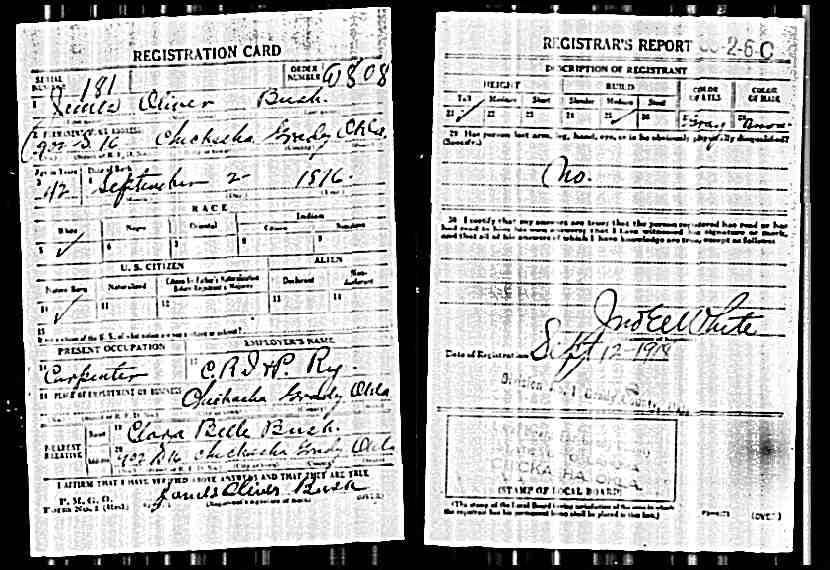 REGISTRATION CARD
SERIAL NUMBER 181 ORDER NUMBER
1 James Oliver Bush.
2 PERMANENT HOME ADDRESS
902 S. 16 Chickasha Grady Okla.
Age in Years Date of Birth
3 42 4 September 2 1816.
RACE
White Negro Oriental Indian
Citizen Noncitizen
5 ✓ 6 7 8 9
U. S. CITIZEN ALIEN
Native Born Naturalized Citizen by Father's Naturalization Before Registrant's Majority Declarant Non-declarant
10 ✓ 11 12 13 14
15
PRESENT OCCUPATION EMPLOYER'S NAME
16 Carpenter 17 C.R.I.&P. Ry.
18 PLACE OF EMPLOYMENT OR BUSINESS
Chickasha Grady Okla
NEAREST RELATIVE Name 19 Clara Belle Bush.
Address 20 902 S. 16 Chickasha Grady Okla
I AFFIRM THAT I HAVE VERIFIED ABOVE ANSWERS AND THAT THEY ARE TRUE
P. M. G. O.
Form No. 1 (Red) James Oliver Bush (OVER)
REGISTRAR'S REPORT
DESCRIPTION OF REGISTRANT
HEIGHT BUILD COLOR OF EYES COLOR OF HAIR
Tall Medium Short Slender Medium Stout
21 ✓ 22 23 24 25 ✓ 26 27 Gray 28 Brown
29 Has person lost arm, leg, hand, eye, or is he obviously physically disqualified?
(Specify.)
No.
30 I certify that my answers are true; that the person registered has read or has
had read to him his own answers; that I have witnessed his signature or mark,
and that all of his answers of which I have knowledge are true, except as follows:
Jno E White
Date of Registration Sept 12 1918
Division No. 1 Grady County, Okla.
CHICKASHA, OKLA.
(STAMP OF LOCAL BOARD)
(The stamp of the Local Board having jurisdiction of the area in which
the registrant has his permanent home shall be placed in this box.)
(OVER)